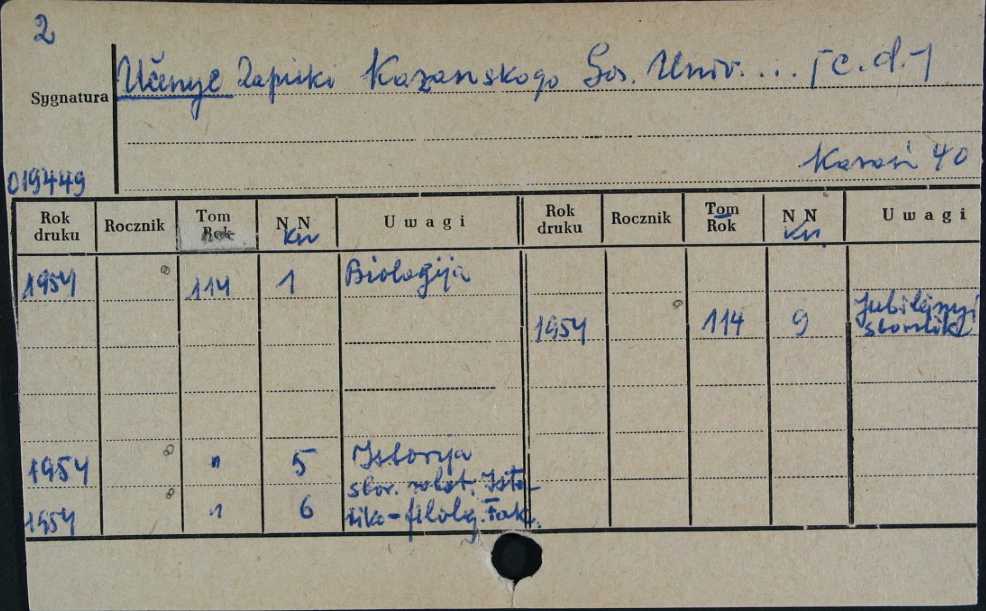 2
Učenye Zapiski Kazanskogo Gos. Univ. ... [c.d.]
Sygnatura
Kazań 40
019449
Rok druku Rocznik Tom Rok NN Kn Uwagi Rok druku Rocznik Tom Rok NN Kn Uwagi
1954 114 1 Biologija
1954 114 9 Jubilejnyj sbornik
1954 " 5 Istorija
sbor. rabot. Isto-
1954 " 6 riko-filolog. Fak.